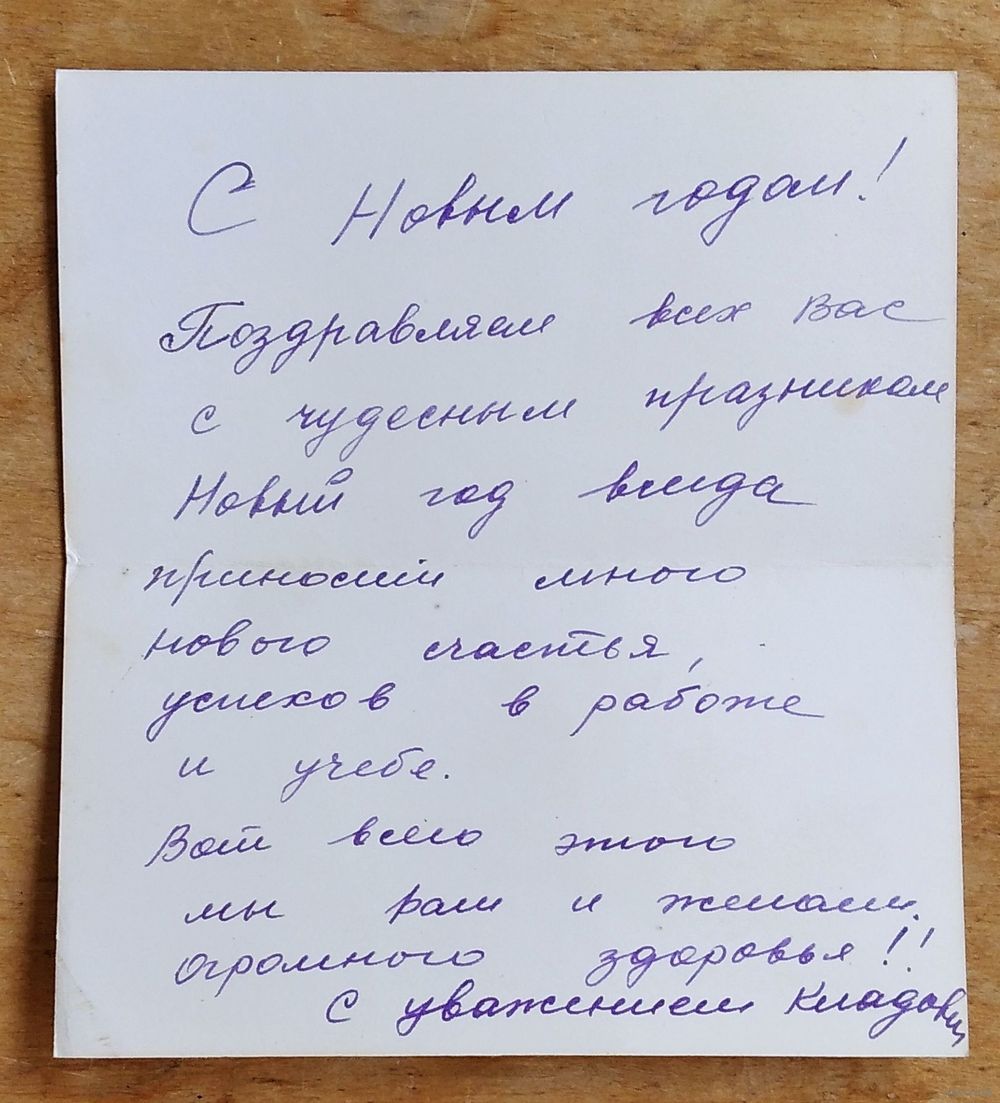 С Новым годом!
Поздравляем всех Вас
с чудесным празником
Новый год всегда
приносит много
нового счастья,
успехов в работе
и учебе.
Вот всего этого
мы вам и желаем.
огромного здоровья!!
С уважением Кладовы